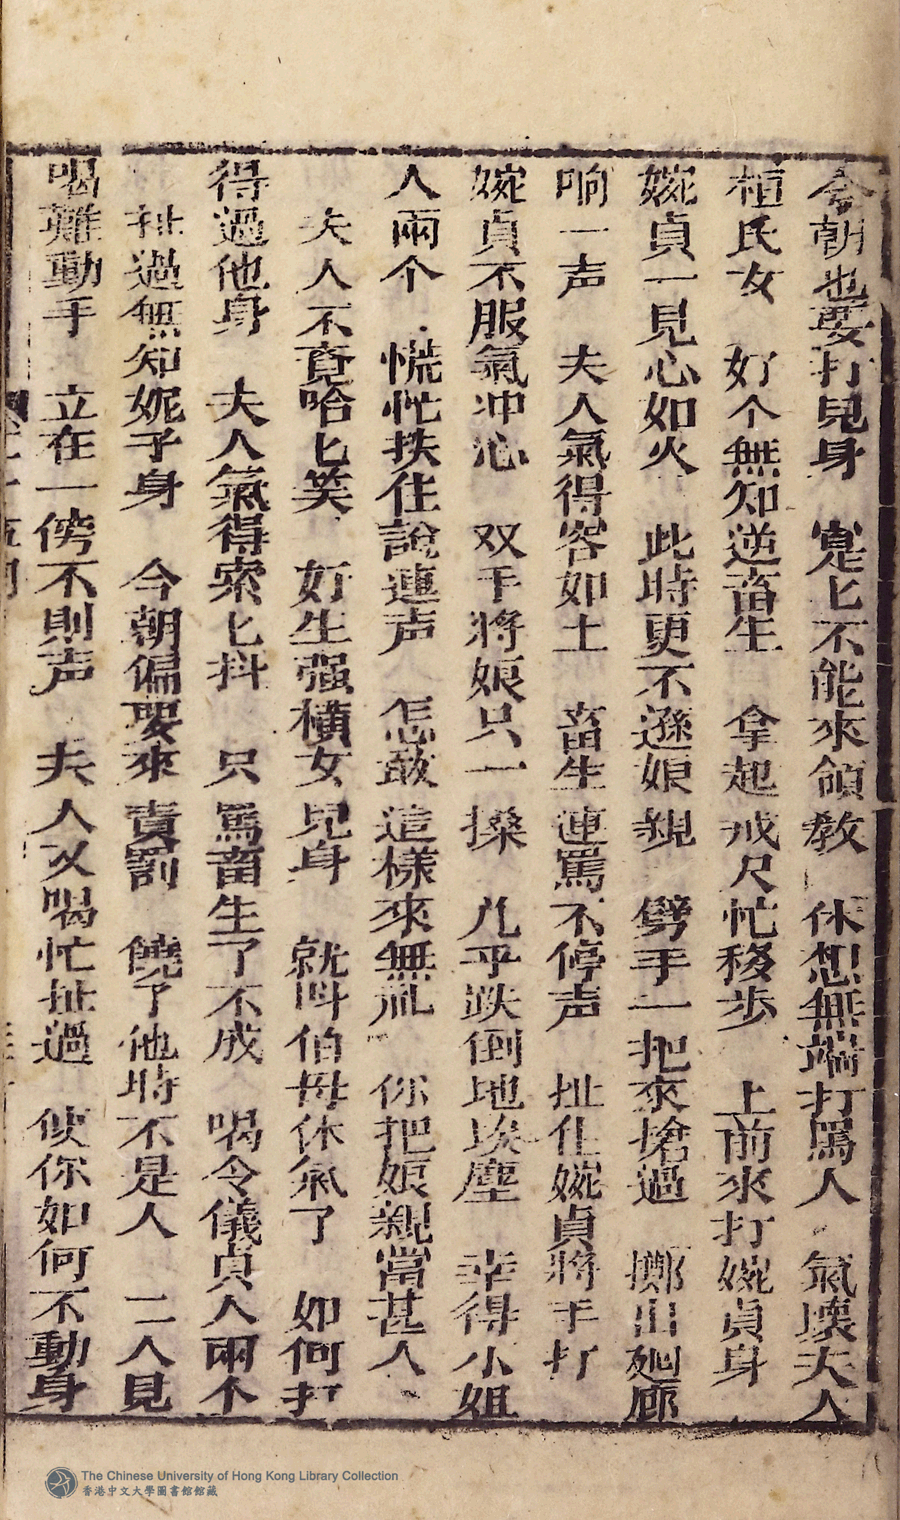 今朝也要打兒身　寔匕不能來領教　休想無端打罵人　氣壞夫人
桓氏女　好个無知逆畜生　拿起戒尺忙移步　上前來打婉貞身
婉貞一見心如火　此時更不遜娘親　劈手一把來搶過　擲出廻廊
响一声　夫人氣得容如土　畜生連罵不停声　扯住婉貞將手打
婉貞不服氣冲心　双手將娘只一搡　几乎跌倒地埃塵　幸得小姐
人兩个　慌忙扶住說連声　怎敢這樣來無礼　你把娘親當甚人
夫人不覓哈匕笑　好生强橫女兒身　就呌伯母休氣了　如何打
得過他身　夫人氣得索匕抖　只罵畜生了不成　喝令儀貞人兩个
扯過無知妮子身　今朝偏要來責罰　饒了他時不是人　二人見
喝難動手　立在一傍不則声　夫人又喝忙扯過　使你如何不動身
The Chinese University of Hong Kong Library Collection
香港中文大學圖書館館藏